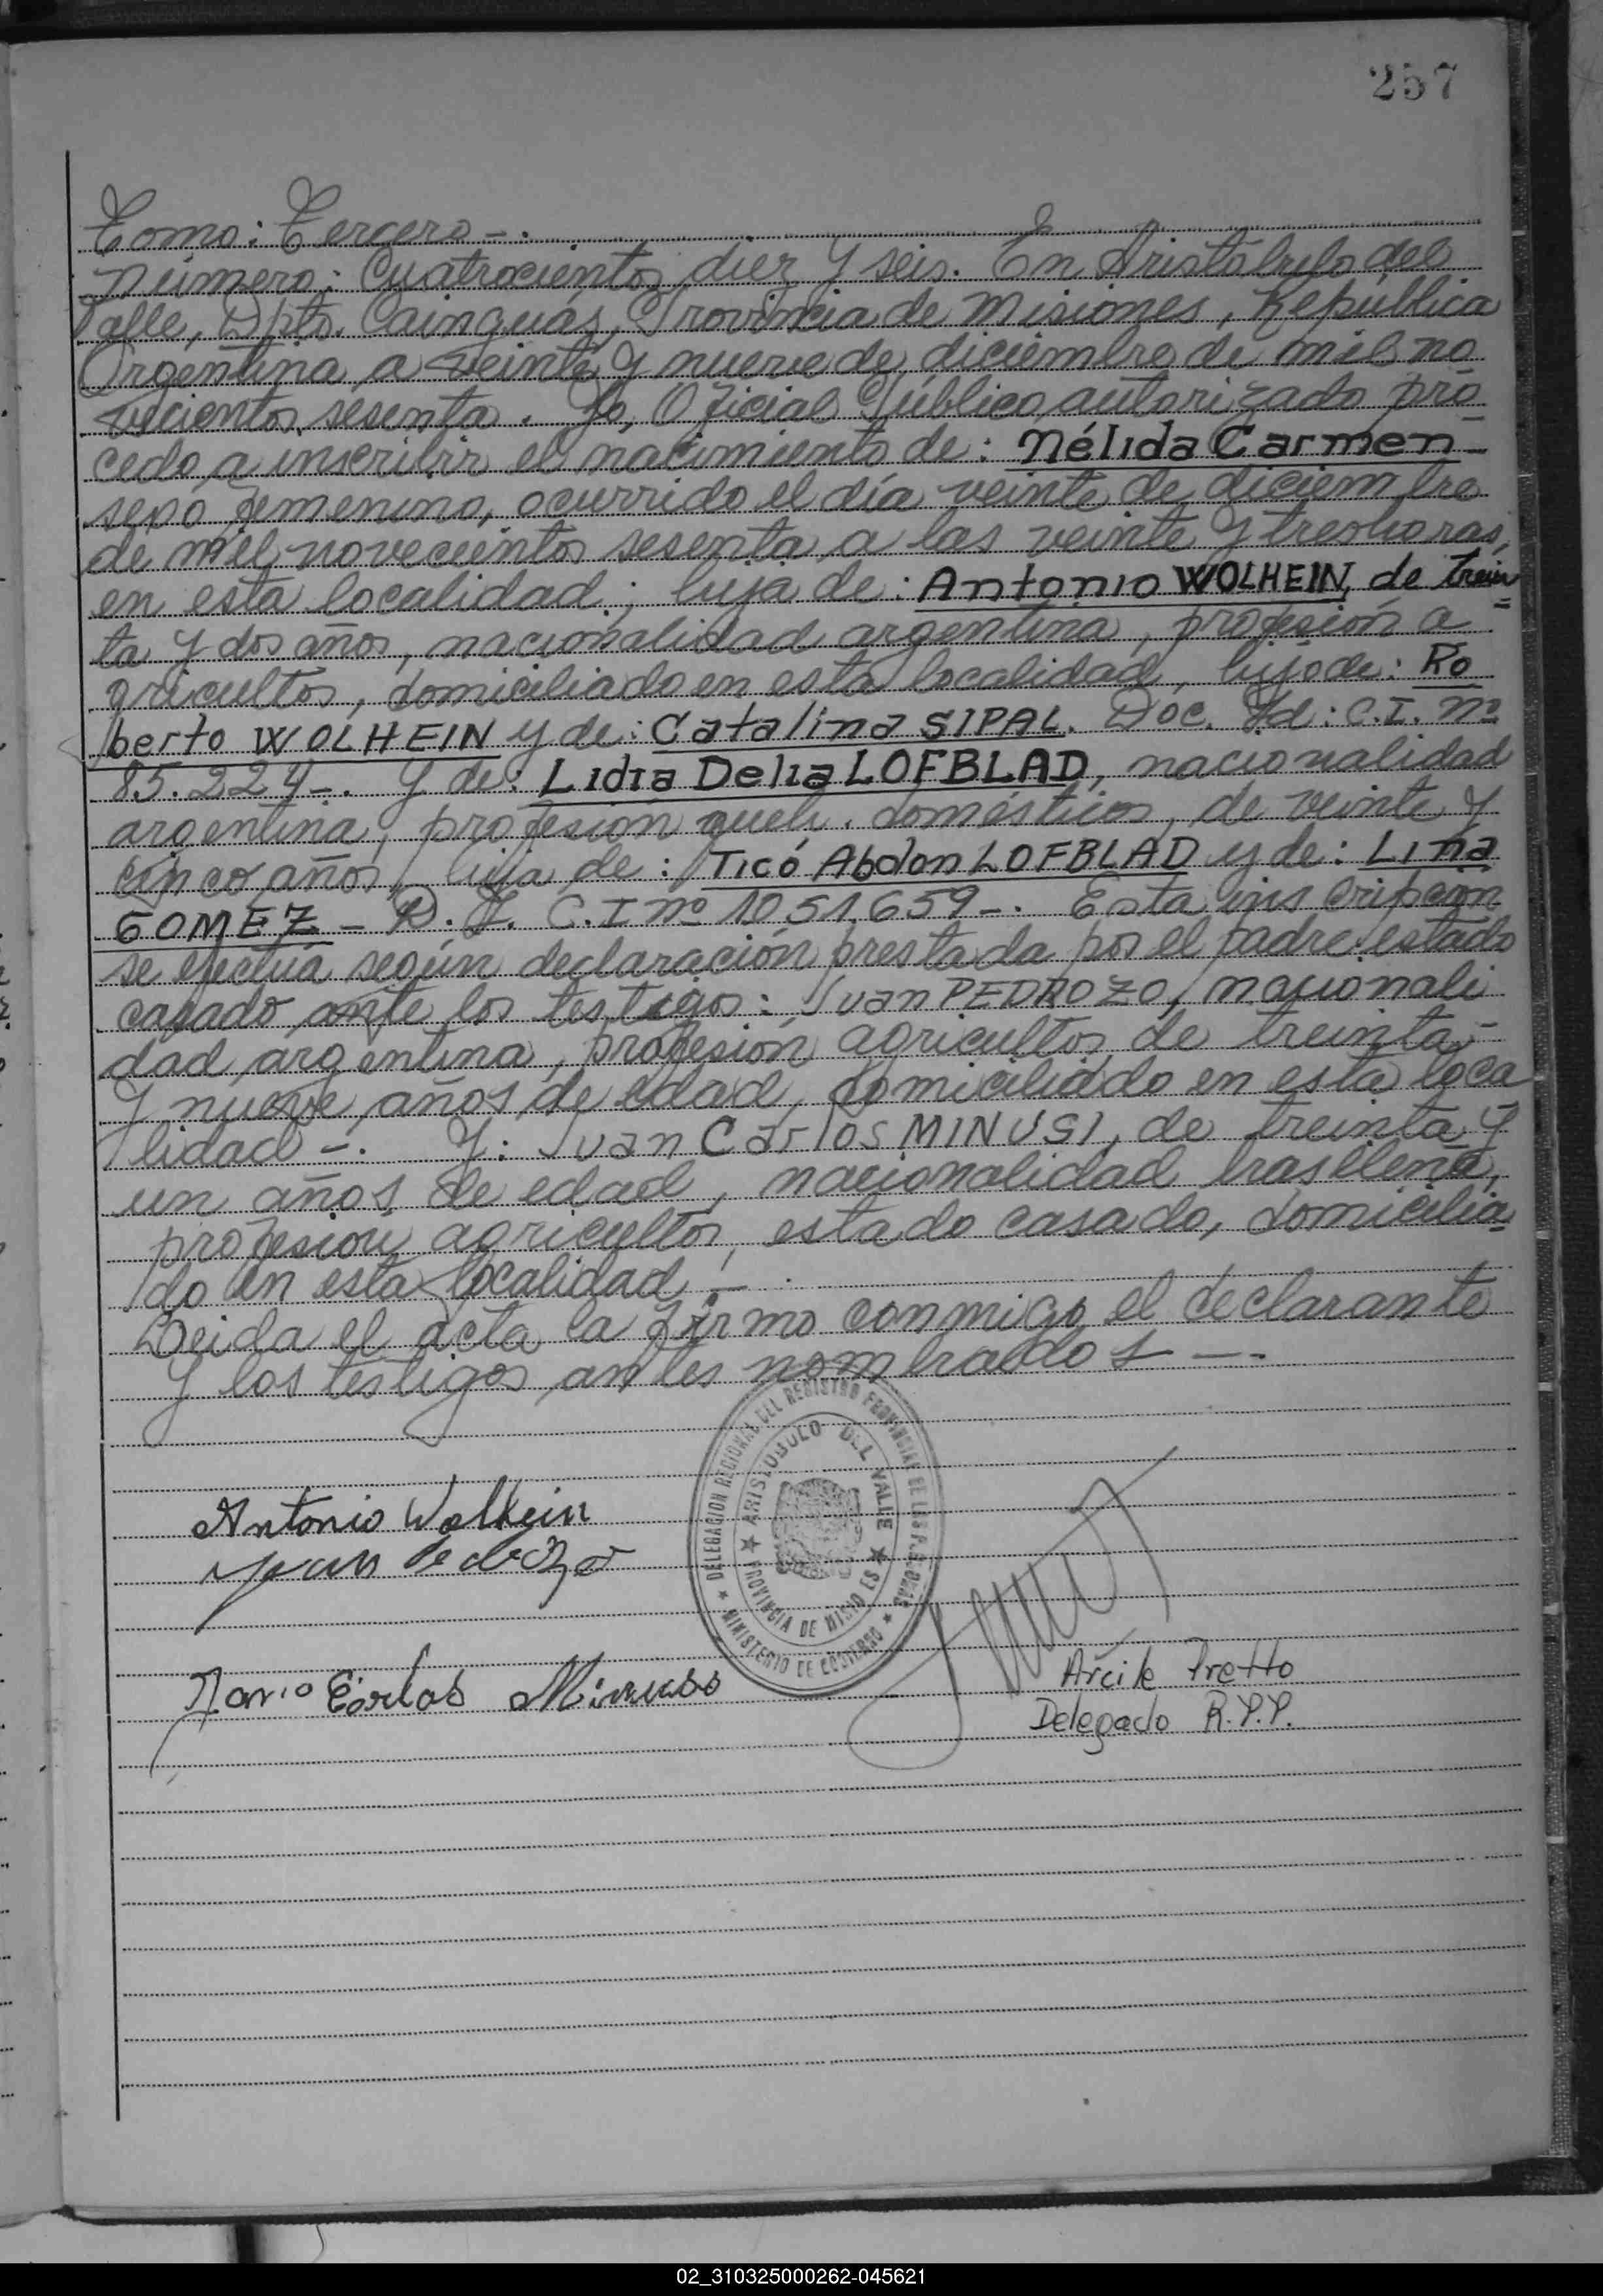 257
Tomo: Tercero -.
Número: Cuatrocientos diez y seis. En Aristóbulo del
Valle, Dpto. Cainguás, Provincia de Misiones, República
Argentina a veinte y nueve de diciembre de mil no
vecientos sesenta. Yo, Oficial Público autorizado pro
cedo a inscribir el nacimiento de: Nélida Carmen -
sexo femenino, ocurrido el día veinte de diciembre
de mil novecientos sesenta a las veinte y tres horas,
en esta localidad; hija de: Antonio WOLHEIN, de trein
ta y dos años, nacionalidad argentina, profesión a
gricultor, domiciliado en esta localidad, hijo de: Ro
berto WOLHEIN y de: Catalina SIPAL. Doc. Id: C.I. nº
85.224-. Y de: Lidia Delia LOFBLAD, nacionalidad
argentina, profesión queh. domésticos, de veinte y
cinco años, hija de: Ticó Abdon LOFBLAD y de: Lina
GOMEZ - D. I. C.I nº 1051.659-. Esta inscripción
se efectúa según declaración prestada por el padre estado
casado ante los testigos: Juan PEDROZO, nacionali
dad argentina, profesión agricultor de treinta -
y nueve años de edad, domiciliado en esta loca
lidad -. Y: Juan Carlos MINUSI, de treinta y
un años de edad, nacionalidad brasileña,
profesión agricultor, estado casado, domicilia
do en esta localidad. -
Leida el acta la firmo conmigo el declarante
y los testigos antes nombrados - -.
DELEGACION REGIONAL DEL REGISTRO PROVINCIAL DE LAS PERSONAS
ARISTOBULO DEL VALLE
PROVINCIA DE MISIONES
MINISTERIO DE GOBIERNO
Antonio Wolhein
Juan Pedrozo
Carlos
Arcile Pretto
Delegado R.P.P.
02_310325000262-045621